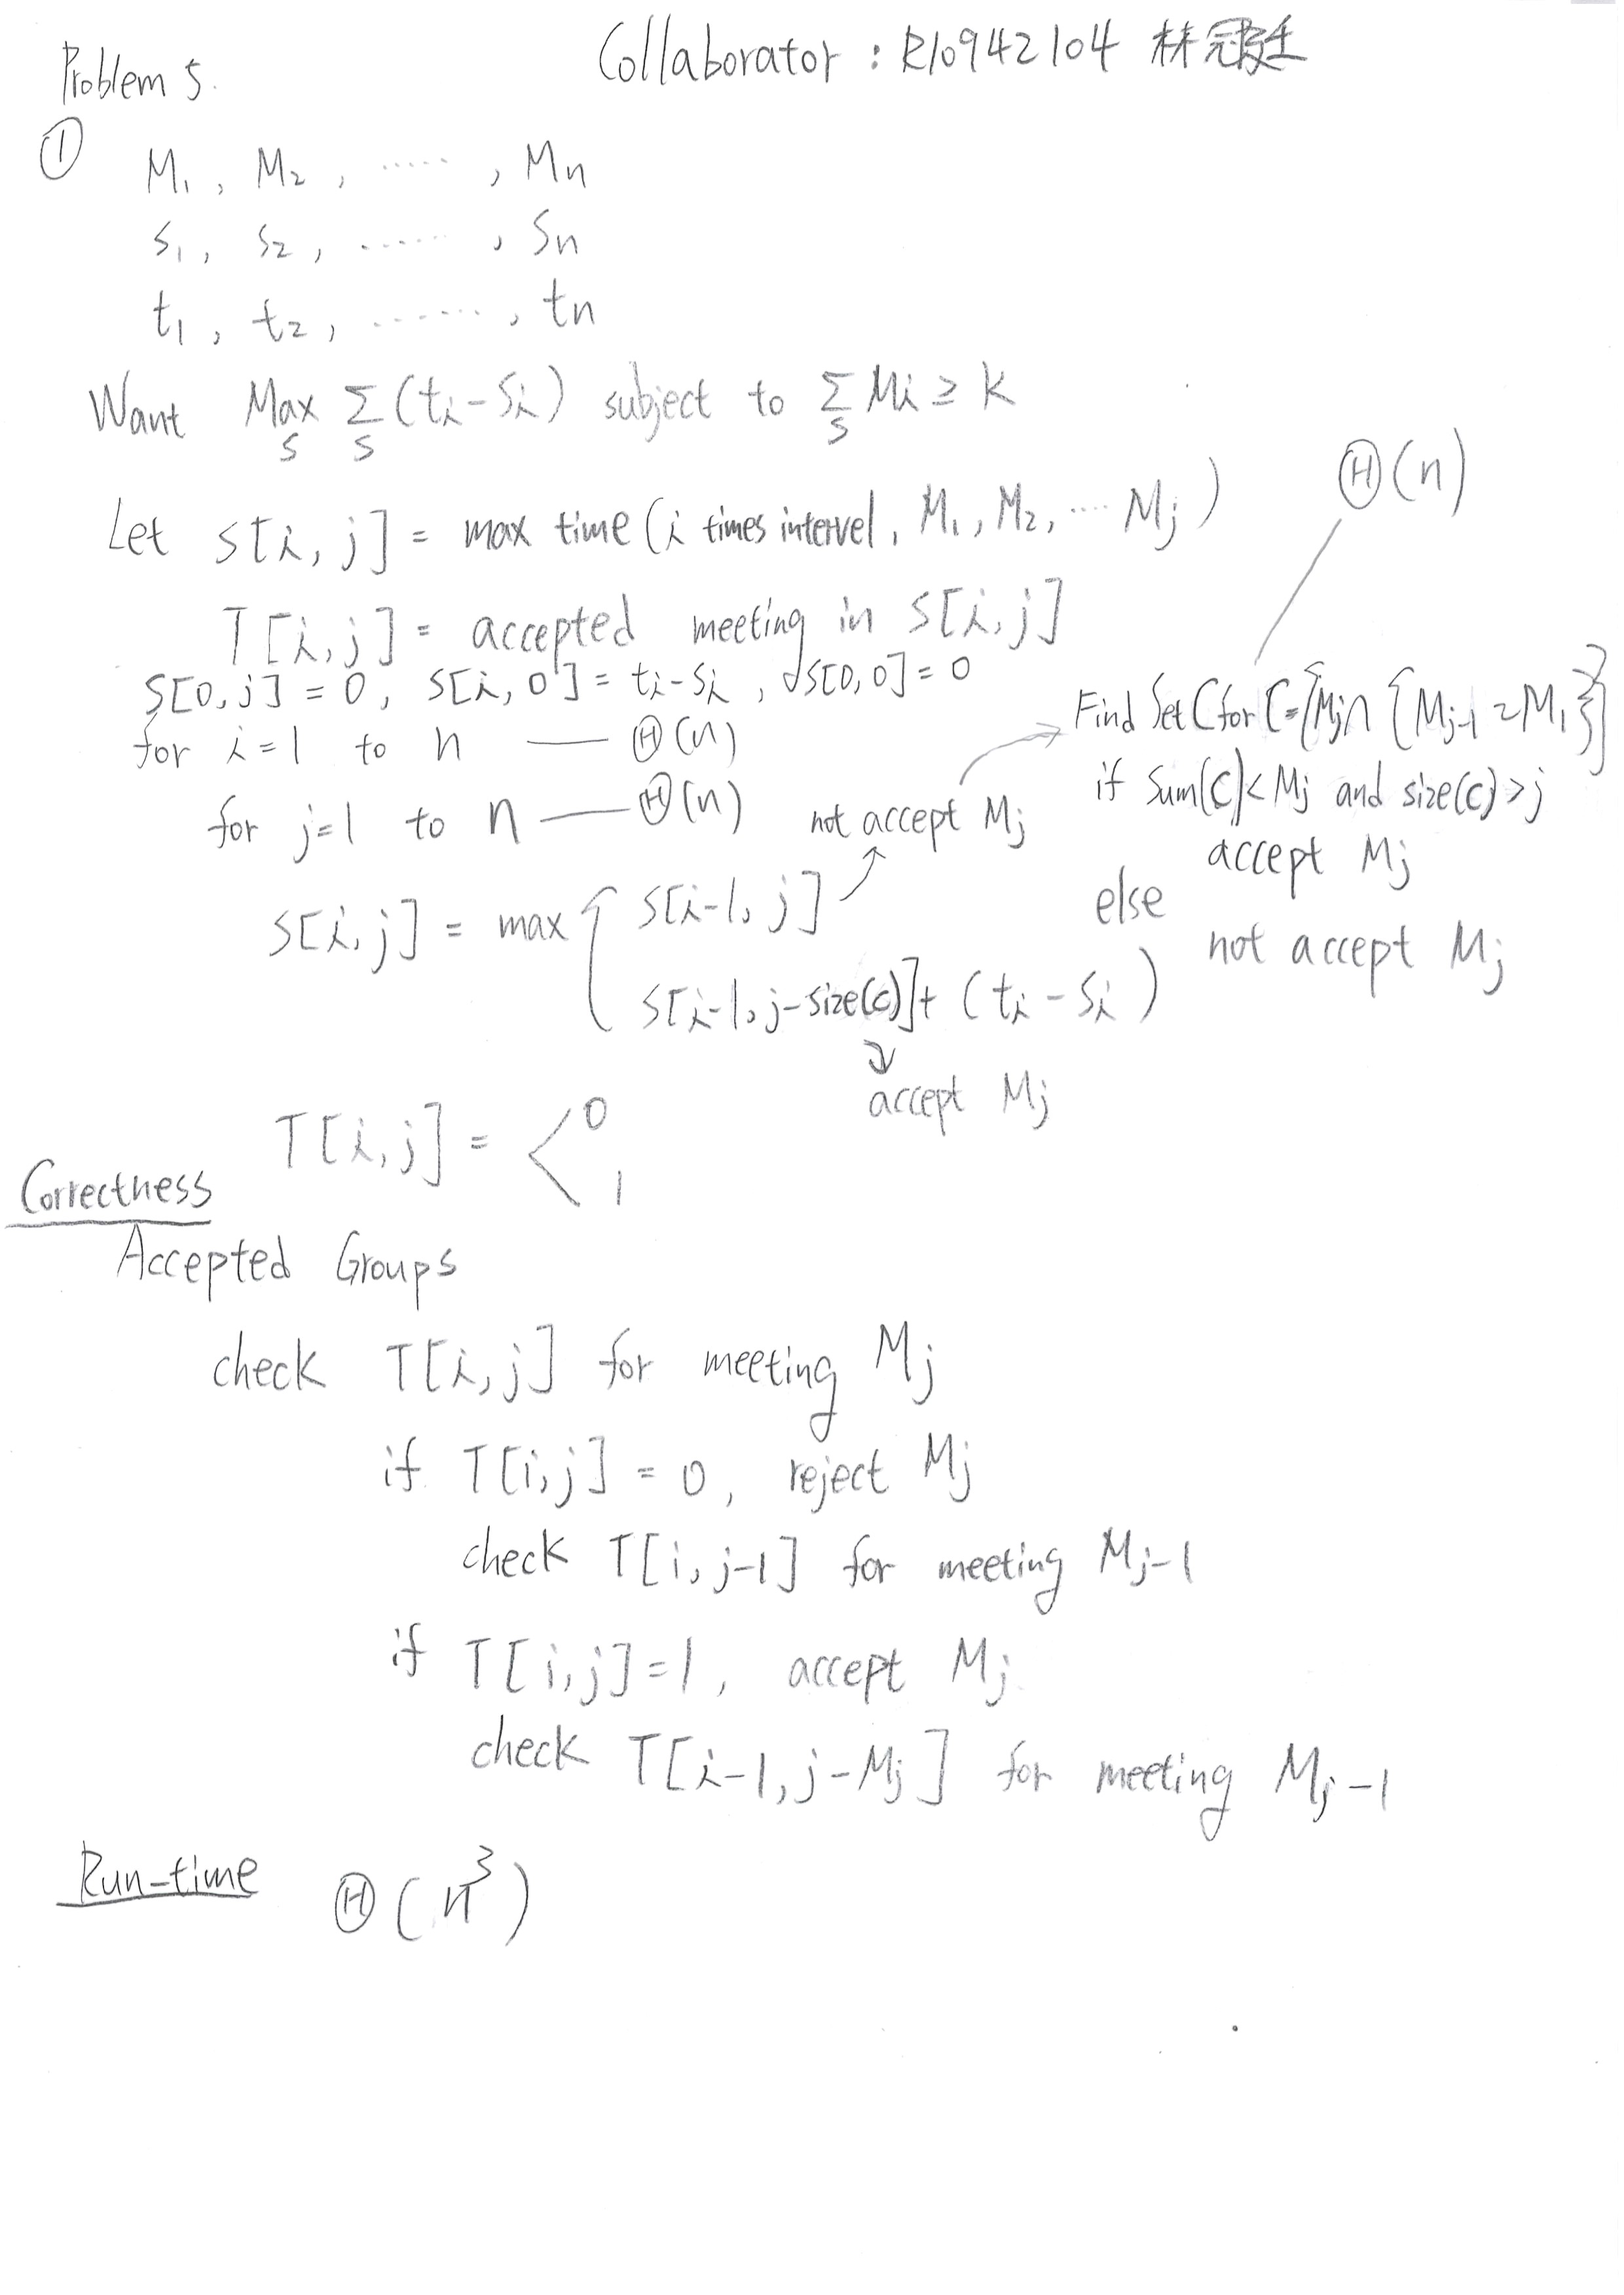 Collaborator : R10942104 林冠廷
Problem 5.
① M₁, M₂, ......, Mn
s₁, s₂, ......, sn
t₁, t₂, ......, tn
Want Max_S Σ_S (tᵢ-sᵢ) subject to Σ_S Mᵢ ≥ k
Θ(n)
Let s[i, j] = max time (i times intervel, M₁, M₂, .... Mj)
T[i, j] = accepted meeting in s[i, j]
s[0, j] = 0, s[i, 0] = tᵢ-sᵢ, s[0, 0] = 0
for i=1 to n — Θ(n)
for j=1 to n — Θ(n)
not accept Mj
Find Set C for C={Mj∩{Mj-1 ~ M₁}}
if sum(c)<Mj and size(c)>j
accept Mj
else
not accept Mj
s[i, j] = max { s[i-1, j]
s[i-1, j-size(c)]+ (tᵢ-sᵢ)
accept Mj
T[i, j] = < 0
1
Correctness
Accepted Groups
check T[i, j] for meeting Mj
if T[i, j] = 0, reject Mj
check T[i, j-1] for meeting Mj-1
if T[i, j]=1, accept Mj
check T[i-1, j-Mj] for meeting Mj-1
Run-time Θ(n³)